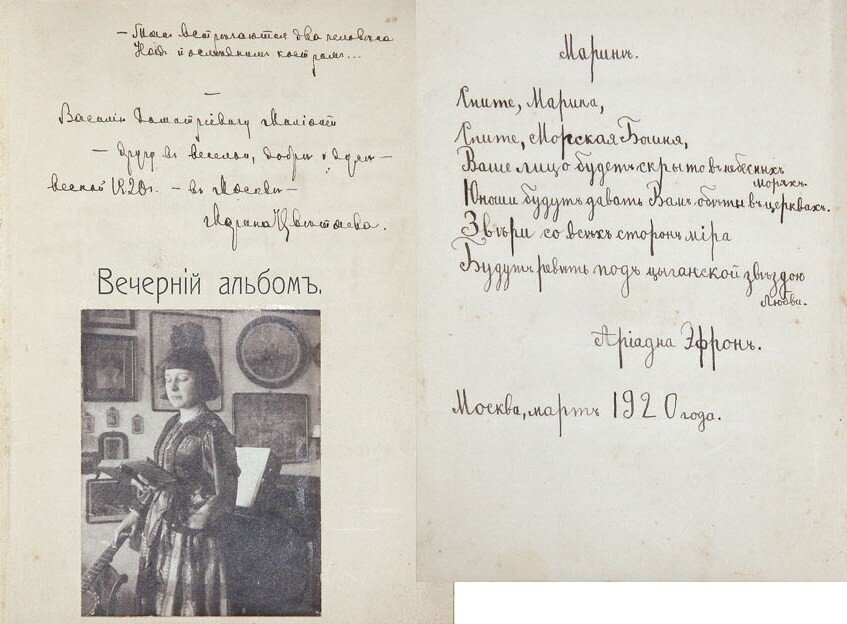 — встрѣчаются два человѣка
Надъ послѣднимъ костромъ...
—
Василію Дмитріевичу Миліоти
— другу въ веселой,
весной 1920 г. — въ Москвѣ —
Марина Цвѣтаева.
Вечерній альбомъ.
Маринѣ.
Спите, Марина,
Спите, Морская Богиня,
Ваше лицо будетъ скрыто въ небесныхъ
моряхъ.
Юноши будутъ давать Вамъ обѣты въ церквахъ.
Звѣри со всѣхъ сторонъ міра
Будутъ ревѣть подъ цыганской звѣздою
Любви.
Аріадна Эфронъ.
Москва, мартъ 1920 года.